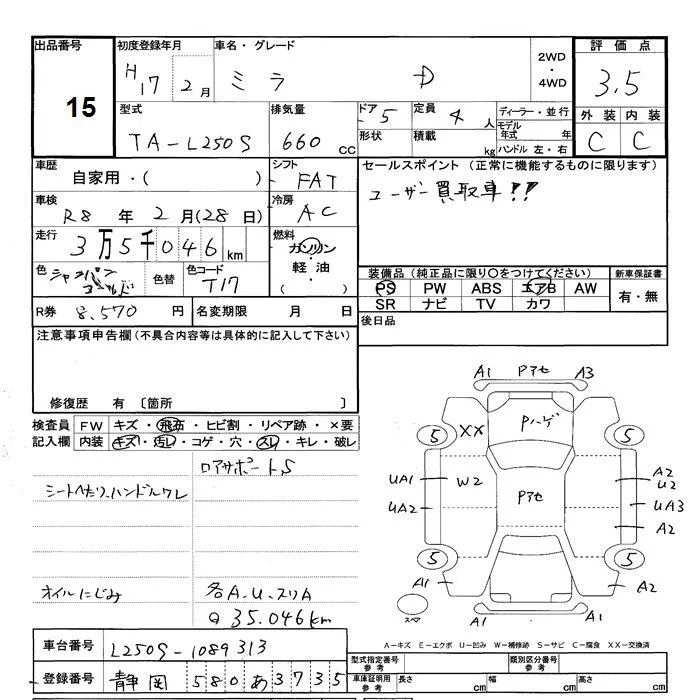 出品番号 初度登録年月 車名・グレード 2WD・4WD 評価点
15 H17 2月 ミラ D 3.5
型式 排気量 ドア 5 定員 4人 ディーラー・並行 外装 内装
TA-L250S 660cc 形状 積載 kg モデル年式 年 ハンドル 左・右 C C
車歴 自家用・( ) シフト FAT セールスポイント (正常に機能するものに限ります)
車検 R8年 2月(28日) 冷房 AC ユーザー買取車!!
走行 3万5千046km 燃料 ガソリン・軽油・( )
色 シャンパンゴールド 色替 色コード T17 装備品 (純正品に限り〇をつけてください) 新車保証書
PS PW ABS エアB AW 有・無
SR ナビ TV カワ
R券 8,570円 名変期限 月 日 後日品
注意事項申告欄 (不具合内容等は具体的に記入して下さい)
修復歴 有 〔箇所 〕
検査員記入欄 FW キズ・飛石・ヒビ割・リペア跡・×要
内装 キズ・汚レ・コゲ・穴・スレ・キレ・破レ
ロアサポートS
シートヘタリ、ハンドルワレ
オイルにじみ 各A.U.スリA
Q 35.046km
A1 Pアセ A3
5 XX Pハゲ 5
UA1 W2 Pアセ A2 U2
UA2 UA3
A2
5 5
A1 A2
スペア A1 A1
A-キズ E-エクボ U-凹み W-補修跡 S-サビ C-腐食 XX-交換済
車台番号 L250S-1089313
型式指定番号 参考 類別区分番号 参考
登録番号 静岡 580 あ 3735
車庫証明用 参考 長さ cm 幅 cm 高さ cm